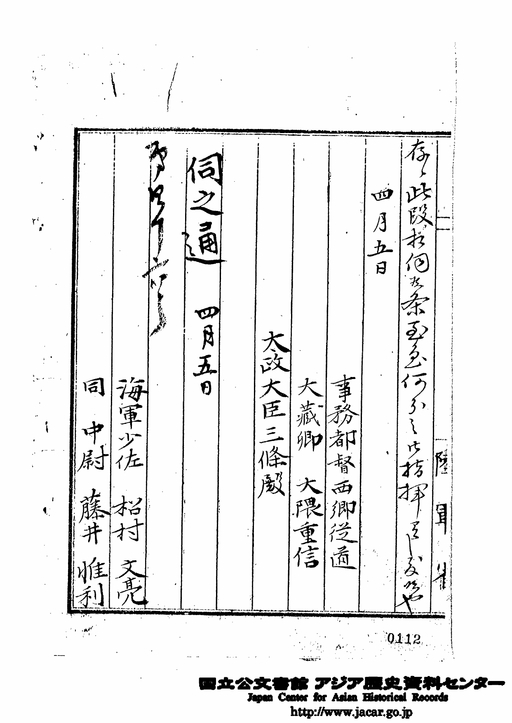 此段相伺候条至急何分之御指揮
四月五日
事務都督西郷従道
大蔵卿 大隈重信
大政大臣三條殿
伺之通 四月五日
海軍少佐 松村 文亮
同 中尉 藤井 惟利
陸軍省
0112
国立公文書館 アジア歴史資料センター
Japan Center for Asian Historical Records
http://www.jacar.go.jp